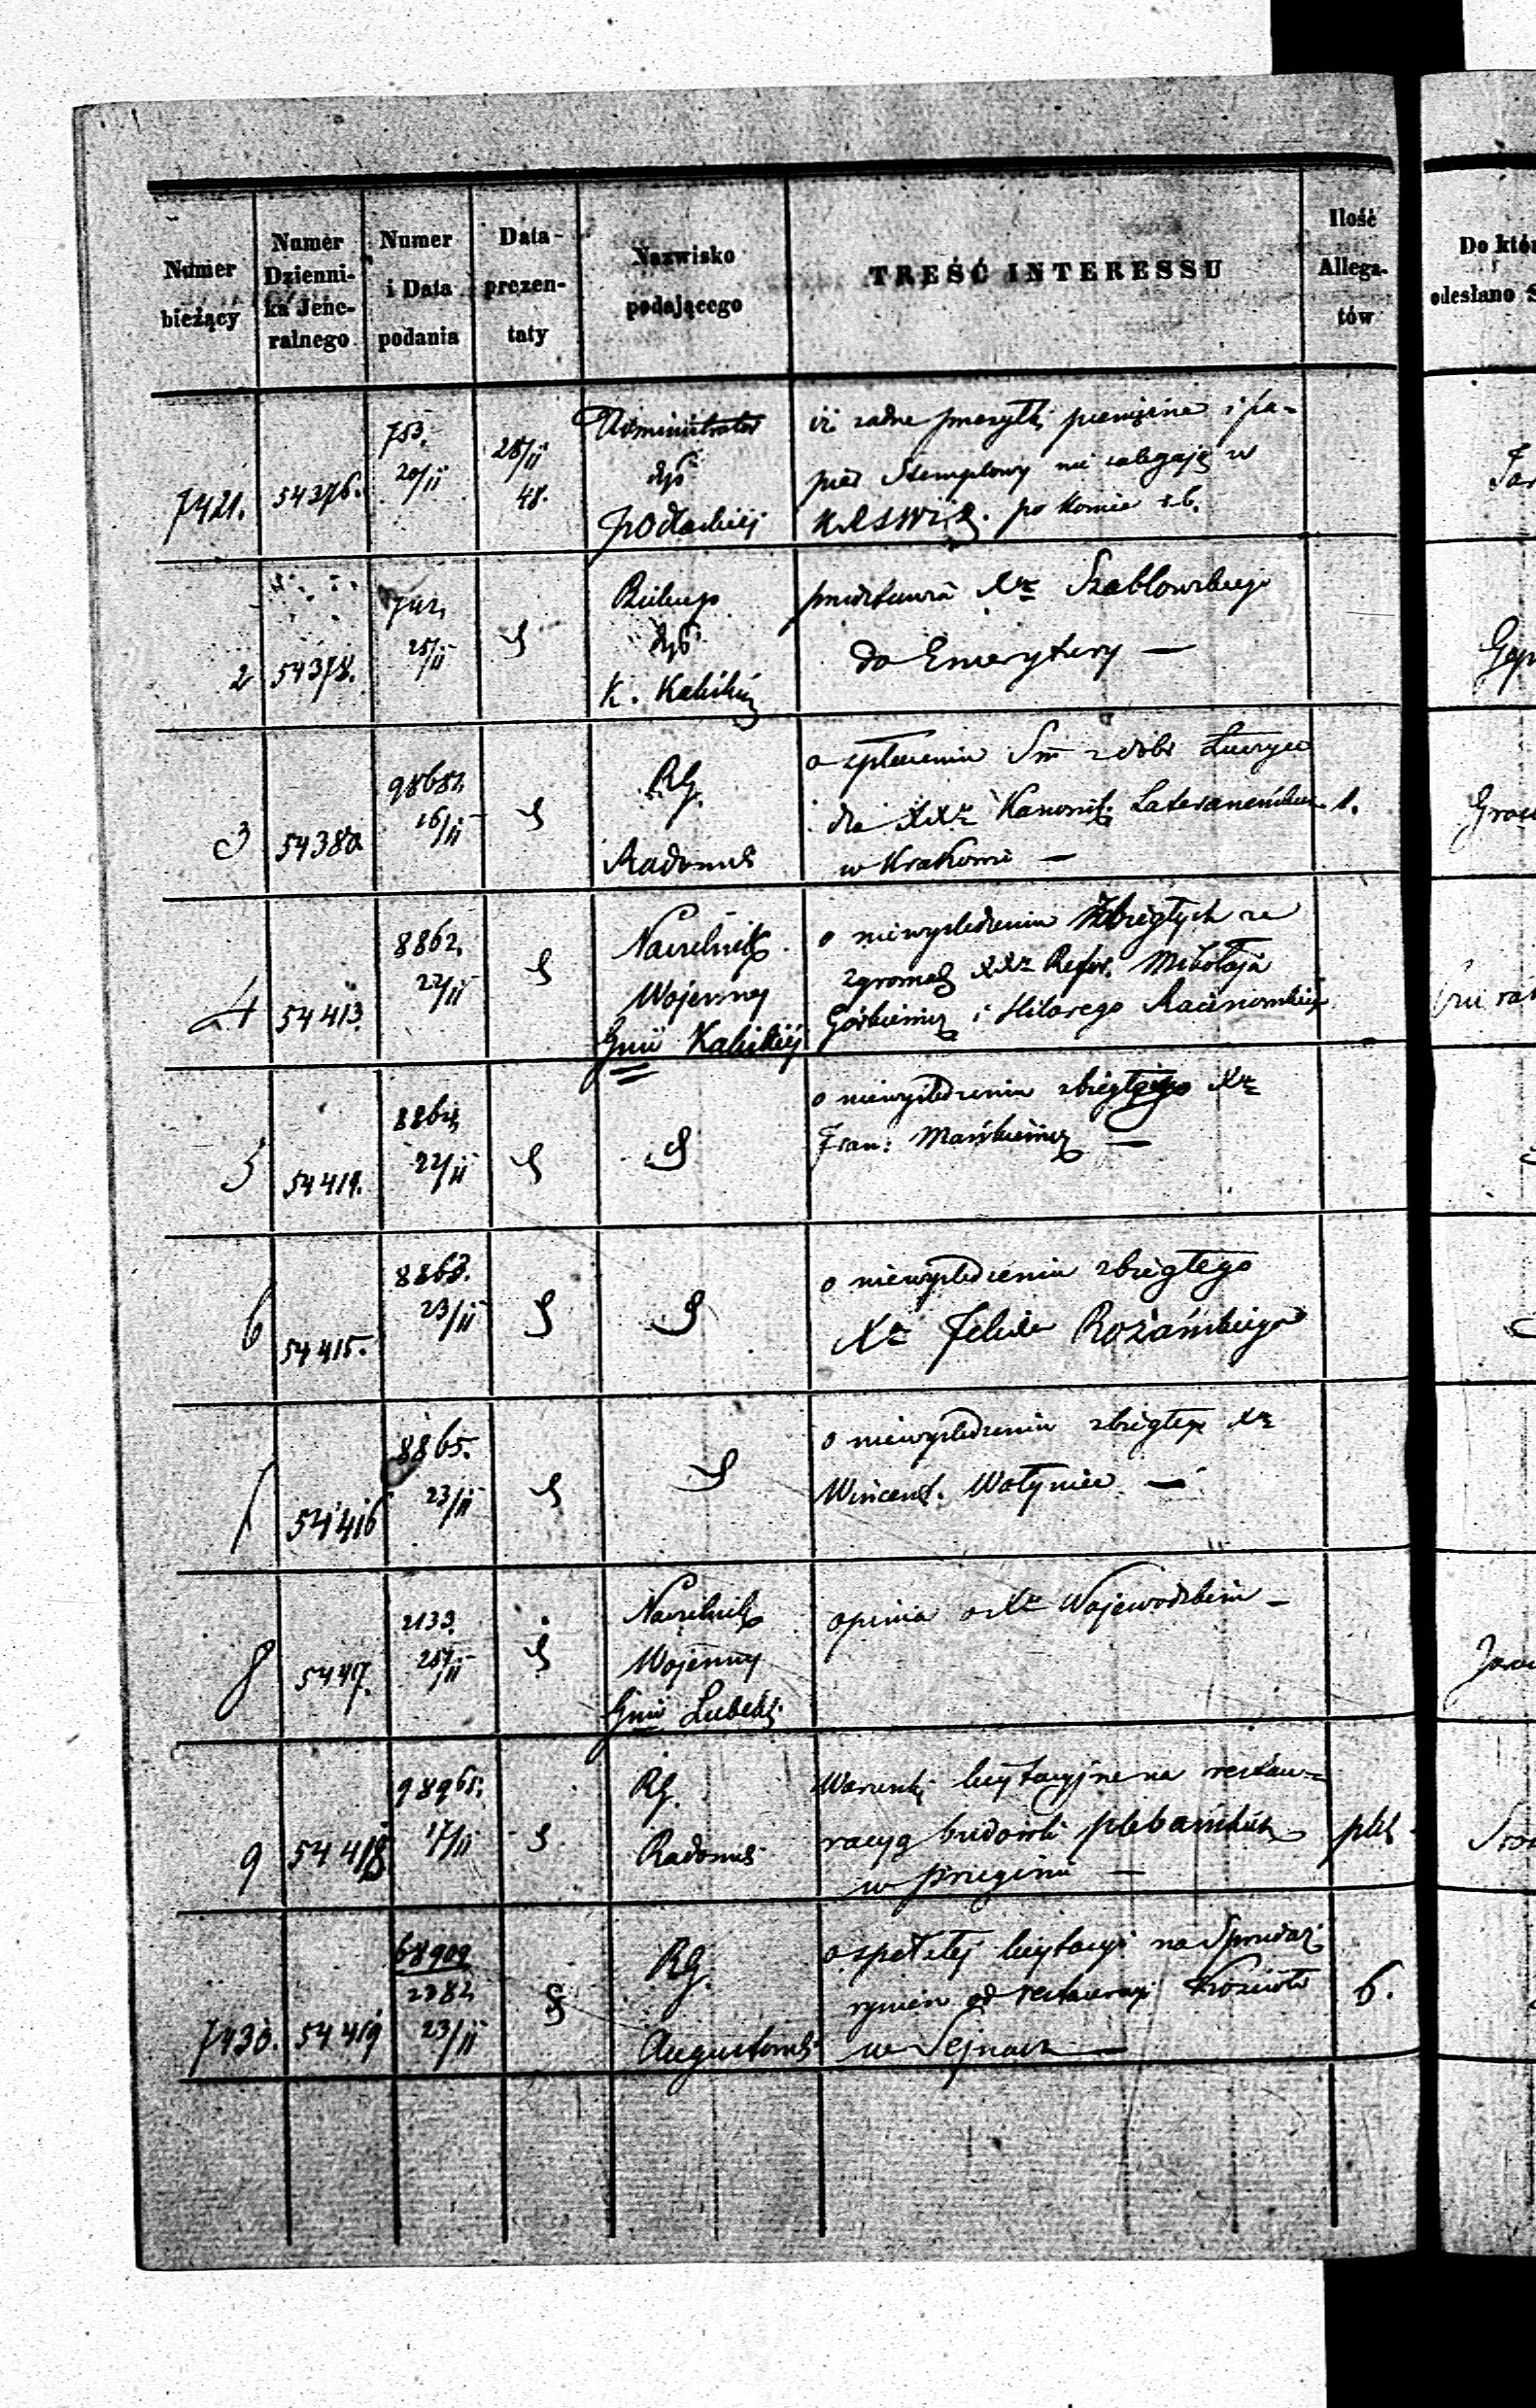 Numer bieżący
Numer Dzienni- ka Jene- ralnego
Numer i Data podania
Data prezen- taty
Nazwisko podającego
TREŚĆ INTERESSU
Ilość Allega- tów
Do któr
odesłano S
7421. 54376. 753. 20/II 28/II 48.
Administrator
dyć
Podlaskiej
iż żadne przesyłki pieniężne i pa-
pier Stemplowy nie zalegają w
po koniec
2 54378. 742. 25/II
Biskup
dyć
K. Kaliskiej
przedstawia Xa Szablowskiego
do Emerytury —
3 54380 98682 16/II
RG.
Radoms
o spłacenie Sm z dóbr
dla XXz Kanonik. Lateraneńskich 1.
w Krakowie —
4 54413. 8862. 22/II
Naczelnik
Wojenny
Gnii Kaliskiej
o niewyśledzeniu Zbiegłych ze
zgromadz XXz Refor. Mikołaja
Górkiewicz i Hilarego
5 54414. 8864. 22/II
o niewyśledzeniu zbiegłego Xa
Fran: Mańkiewicz —
6 54415. 8863. 23/II
o niewyśledzeniu zbiegłego
Xa Felixa Rożańskiego
7 54416 8865. 23/II
o niewyśledzeniu zbiegłego Xa
Wincent. Wołyniec —
8 54417. 2133. 24/II
Naczelnik
Wojenny
Gnii Lubels.
opinia o Xu Wojewodzkim —
9 54418 98965. 17/II
RG.
Radoms
Warunki licytacyjne na restau-
racyą budowli plebańskich
w —
7430. 54419 68909 2382 23/II
RG.
Augustows
o spełzłej licytacyi na Sprzedaż
od restauracyi Kościoła 6.
w Sejnach —